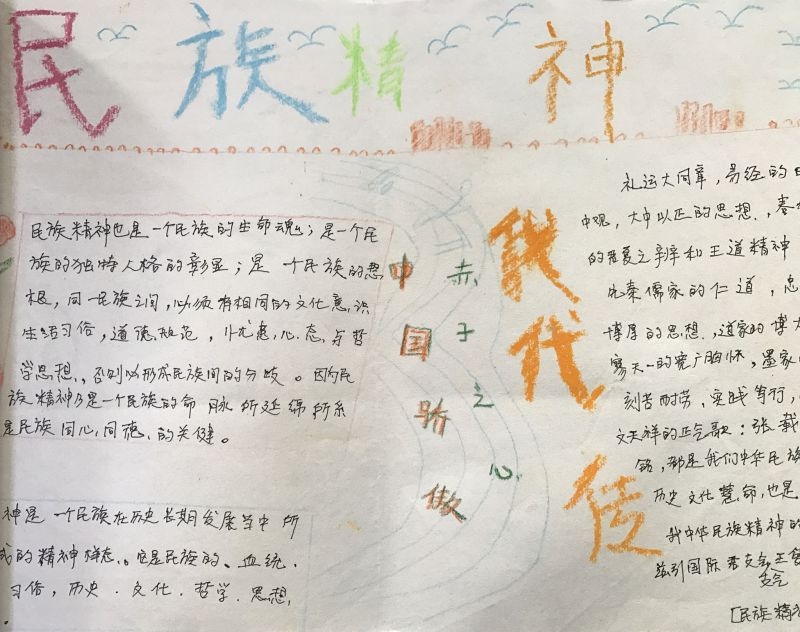 民族精神
民族精神也是一个民族的生命魂；是一个民
族的独特人格的彰显；是一个民族的思
根，同一民族之间，必须有相同的文化意识
生活习俗，道德规范，忧患，心态，与哲
学思想，否则必形成民族间的分歧。因
族精神乃是一个民族的命脉所延绵所系
是民族同心，同德，的关健。
神是一个民族在历史长期发展当中所
的精神样态。它是民族的、血统．
习俗，历史．文化．哲学．思想，
中国骄傲
赤子之心
代传
礼运大同章，易经的
中观，大中以正的思想，春
的 之辩和王道精神
先秦儒家的仁道，忠
博厚的思想、道家的博大
寥天一的宽广胸怀，墨家
刻苦耐劳，实践笃行，
文天祥的正气歌：张载
铭，都是我们中华民族
历史文化慧命，也是
我中华民族精神的
兹引国际
[民族精